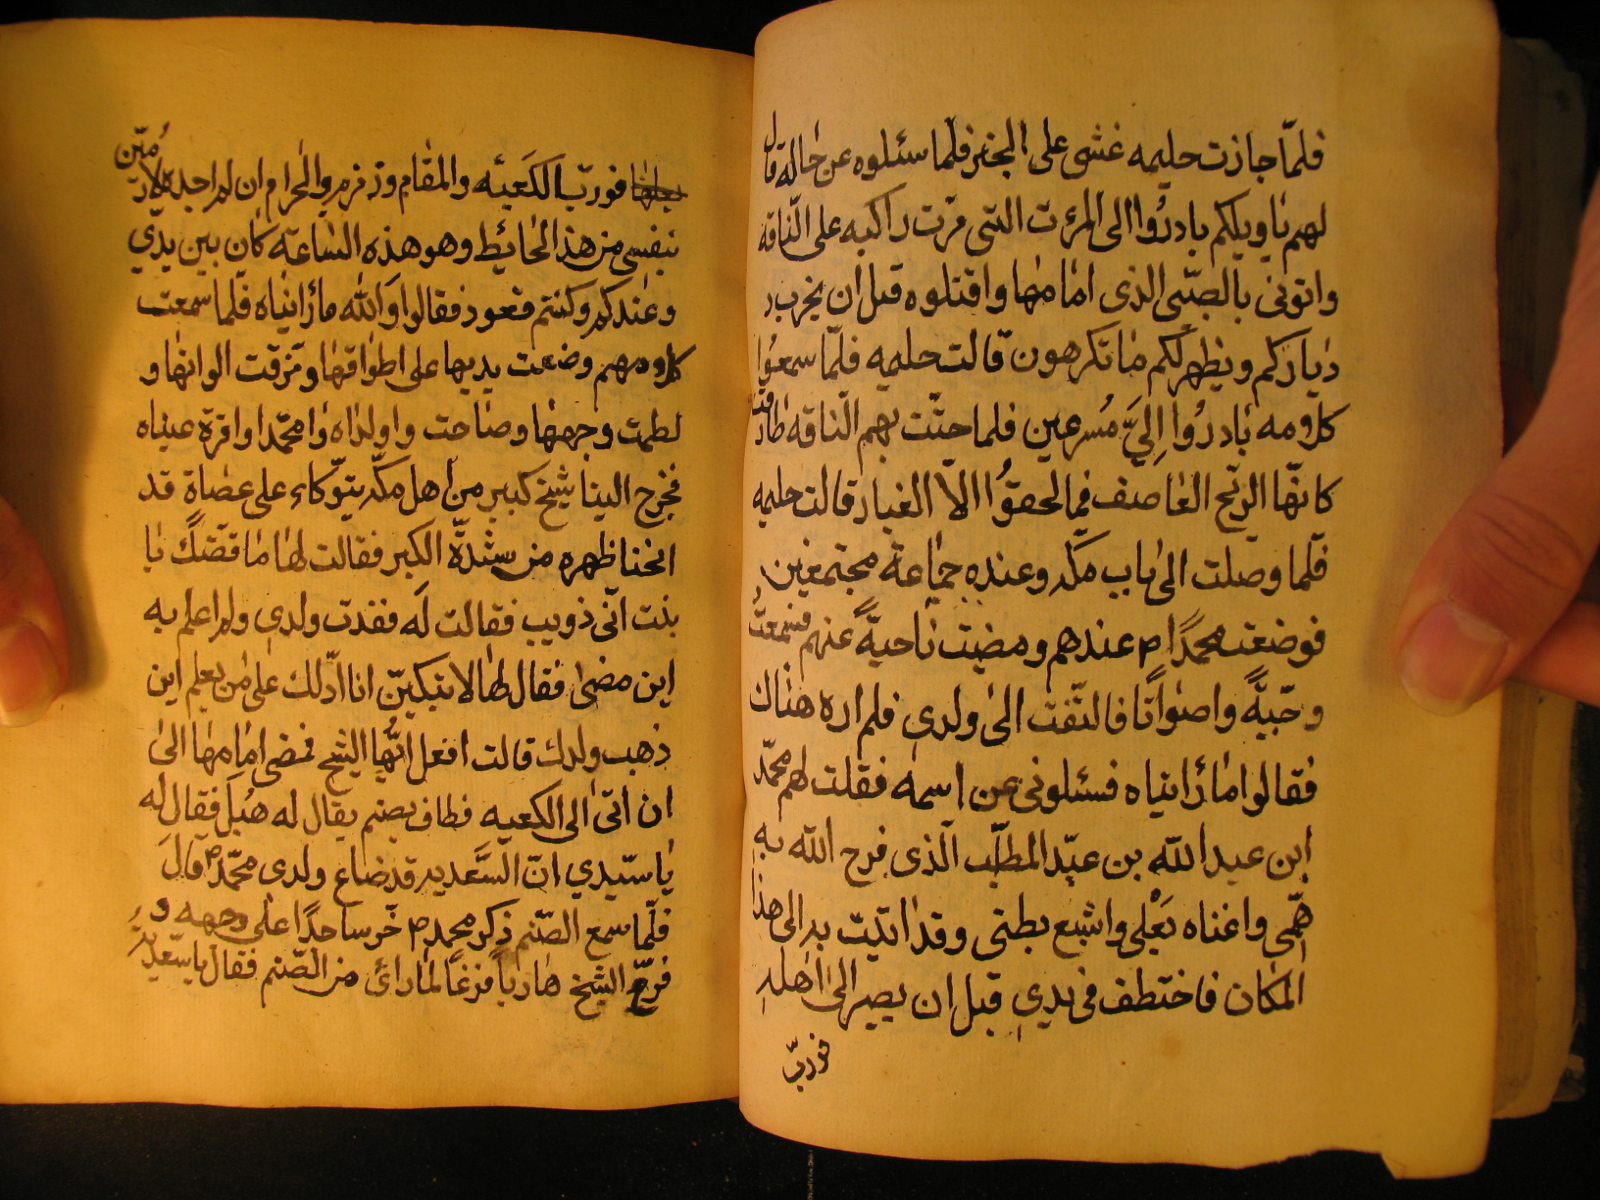 فلمّا جازت حليمه غشى على المخبر فلمّا سئلوه عن حاله قال
لهم يا ويلكم بادرُوا الى المرئت التى مرّت راكبه على النّاقه
واتونى بالصّبى الذى امامها واقتلوه قبل ان يخرب د
ديٰاركم ويظهر لكم مٰا تكرهون قالت حليمه فلمّا سمعُوا
كلامه بٰادرُوا اِلىَّ مُسرعين فلما حنّت بهم النّاقه طٰارت
كانّها الرّيح العٰاصف فمالحقوُا الاّ الغبار قالت حليمه
فلّما وصلت الى باب مكّه وعنده جمٰاعة مجتمعين
فوضعت محمدًا م عندهم ومضيت نٰاحيةً عنهم فسمعتُ
وجّبةً واصوٰاتًا فالتفت الىٰ ولدى فلم اره هنٰاك
فقالوا مٰا رٔاينٰاه فسئلونى عن اسمه فقلت لهم محمّد
ابن عبد الله بن عبّد المطّلب الّذى فرح الله به
همّى واغناه بَعْلى واشبع بطنى وقد اتيت به الى هذا
المكٰان فاختطف فى يدى قبل ان يصر الىٰ اهله
فوربّ
فوربّ الكَعبَه والمقٰام وزمزم والحرٰام ان لم اجده لارمّينّ
بنفسى من هذا الحٰائيط وهو هذه السّاعة كٰان بين يدّي
وعندكم وكنتم قعود فقالوا وَالله مٰا رٔاينٰاه فلما سمعت
كلامهم وضعت يديها على اطوٰاقهٰا ومزقت الوانهٰا و
لطمت وجهها وصٰاحت واولدٰاه وٰا محمّدا واقرة عينٰاه
فخرج الينا شيخ كبير من اهل مكّه يتّوكاء على عصٰاة قد
انحنا ظهره من شدّة الكبر فقالت لهٰا مٰا قصّتكِ يٰا
بنت ابى ذويب فقالت لَه فقدت ولدى ولم اعلم به
اين مضىٰ فقال لهٰا لا تبكينّ انا ادّلك علىٰ مَن يعلم اين
ذهب ولدك قالت افعل ايُّها الشّيخ فمضى امٰامهٰا الىٰ
ان اتىٰ الى الكعبه فطاف بصنم يقال له هُبَل فقال له
يٰا سيّدي انّ السَّعديه قد ضاع ولدى محمّد م قالَ
فلمّا سمع الصّنم ذكر محمد م خّر ساجدًا على وجهه و
فرّج الشيخ هٰارباً فزعًا لمٰا رٰائ من الصّنم فقال يا سعّديّةُ